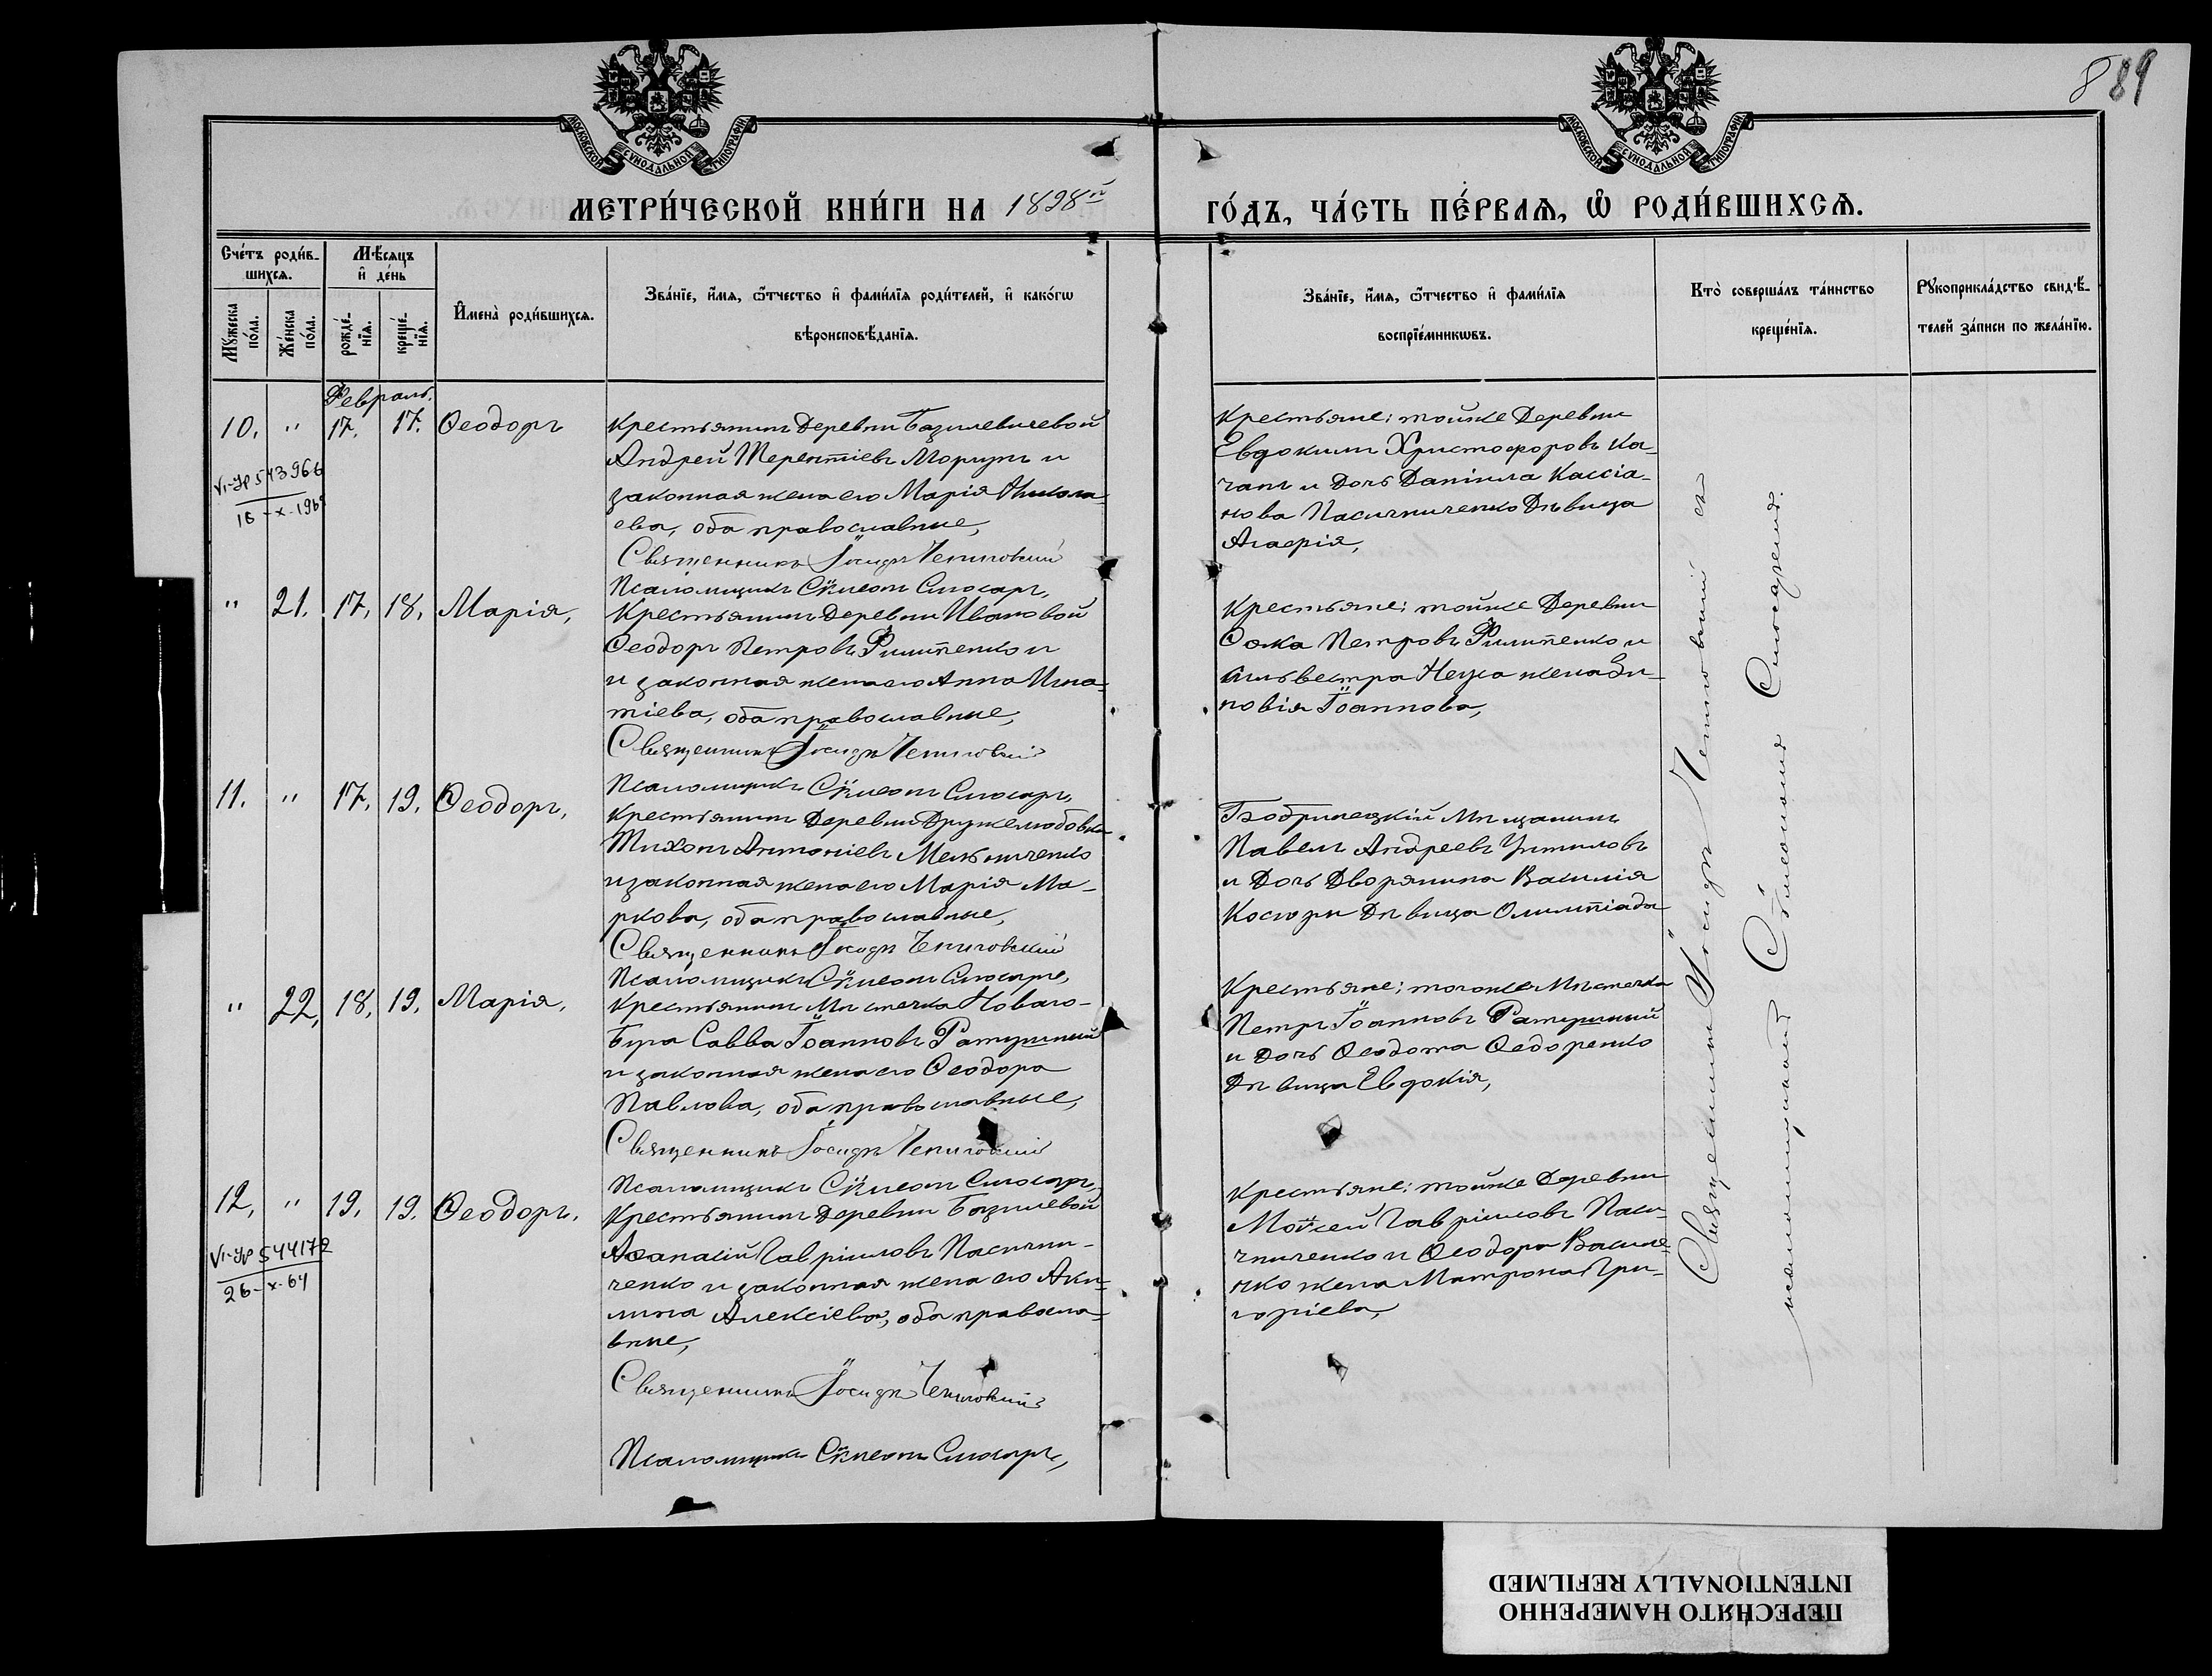 889
МОСКОВСКОЙ СѴНОДАЛЬНОЙ ТИПОГРАФІИ
МОСКОВСКОЙ СѴНОДАЛЬНОЙ ТИПОГРАФІИ
МЕТРИ́ЧЕСКОЙ КНИ́ГИ НА 1898й ГО́ДЪ, ЧА́СТЬ ПЕ́РВАѦ, Ѡ҆ РОДИ́ВШИХСѦ.
Сче́тъ роди́в-
шихсѧ.
Мѣ́сѧцъ
и҆ де́нь
Мꙋ́жеска по́ла.
Же́нска по́ла.
рожде́-нїѧ.
креще́-нїѧ.
И҆мена̀ роди́вшихсѧ.
Зва́нїе, и҆́мѧ, ѻ҆́тчество и҆ фами́лїѧ роди́телей, и҆ како́гѡ
вѣроисповѣ́данїѧ.
Зва́нїе, и҆́мѧ, ѻ҆́тчество и҆ фами́лїѧ
воспрїе́мникѡвъ.
Кто̀ соверша́лъ та́инство
креще́нїѧ.
Рꙋкоприкла́дство свидѣ́-
телей за́писи по жела́нїю.
Февраль.
10. " 17. 17. Ѳеодоръ
VI-УР 543966
16-X-196
Крестьянинъ Деревни Базилевичевой
Андрей Терентіевъ Моргунъ и
законная жена его Марія Никола-
ева, оба православные,
Священникъ Іосифъ Чепиговскій
Псаломщикъ Сѵмеонъ Слюсарь,
Крестьяне: тойже Деревни
Евдокимъ Христофоровъ Ка-
чанъ и Дочь Даніила Кассіа-
нова Пасичниченко Дѣвица
Агафія,
" 21. 17, 18, Марія,
Крестьянинъ Деревни Ивановой
Ѳеодоръ Петровъ Филипенко и
и законная жена его Анна Игна-
тіева, оба православные,
Священникъ Іосифъ Чепиговскій
Псаломщикъ Сѵмеонъ Слюсарь,
Крестьяне: тойже Деревни
Ѳома Петровъ Филипенко и
Сильвестра Неука жена Зи-
новія Іоаннова,
11. " 17, 19. Ѳеодоръ,
Крестьянинъ Деревни Дружелюбовки
Тихонъ Антоніевъ Мельниченко
и законная жена его Марія Ма-
ркова, оба православные,
Священникъ Іосифъ Чепиговскій
Псаломщикъ Сѵмеонъ Слюсарь,
Бобринецкій Мѣщанинъ
Павелъ Андреевъ
и Дочь Дворянина Василія
Косюры Дѣвица Олимпіада
" 22, 18, 19. Марія,
Крестьянинъ Мѣстечка Новаго-
Буга Савва Іоанновъ Ратушный
и законная жена его Ѳеодора
Павлова, оба православные,
Священникъ Іосифъ Чепиговскій
Псаломщикъ Сѵмеонъ Слюсарь,
Крестьяне: тогоже Мѣстечка
Петръ Іоанновъ Ратушный
и Дочь Ѳеодота Ѳедоренко
Дѣвица Евдокія,
12, " 19. 19. Ѳеодоръ,
VI-УР 544172
26-X-64
Крестьянинъ Деревни Базилевой
Аѳанасій Гавріиловъ Пасични-
ченко и законная жена его Аки-
лина Алексіева, оба правосла-
вные,
Священникъ Іосифъ Чепиговскій
Псаломщикъ Сѵмеонъ Слюсарь,
Крестьяне: тойже Деревни
Моѵсей Гавріиловъ Паси-
чниченко и Ѳеодора Василе-
нко жена Матрона Гри-
горіева,
Священникъ Іосифъ Чепиговскій съ
псаломщикомъ Сѵмеономъ Слюсаремъ.
ПЕРЕСНЯТО НАМЕРЕННО
INTENTIONALLY REFILMED